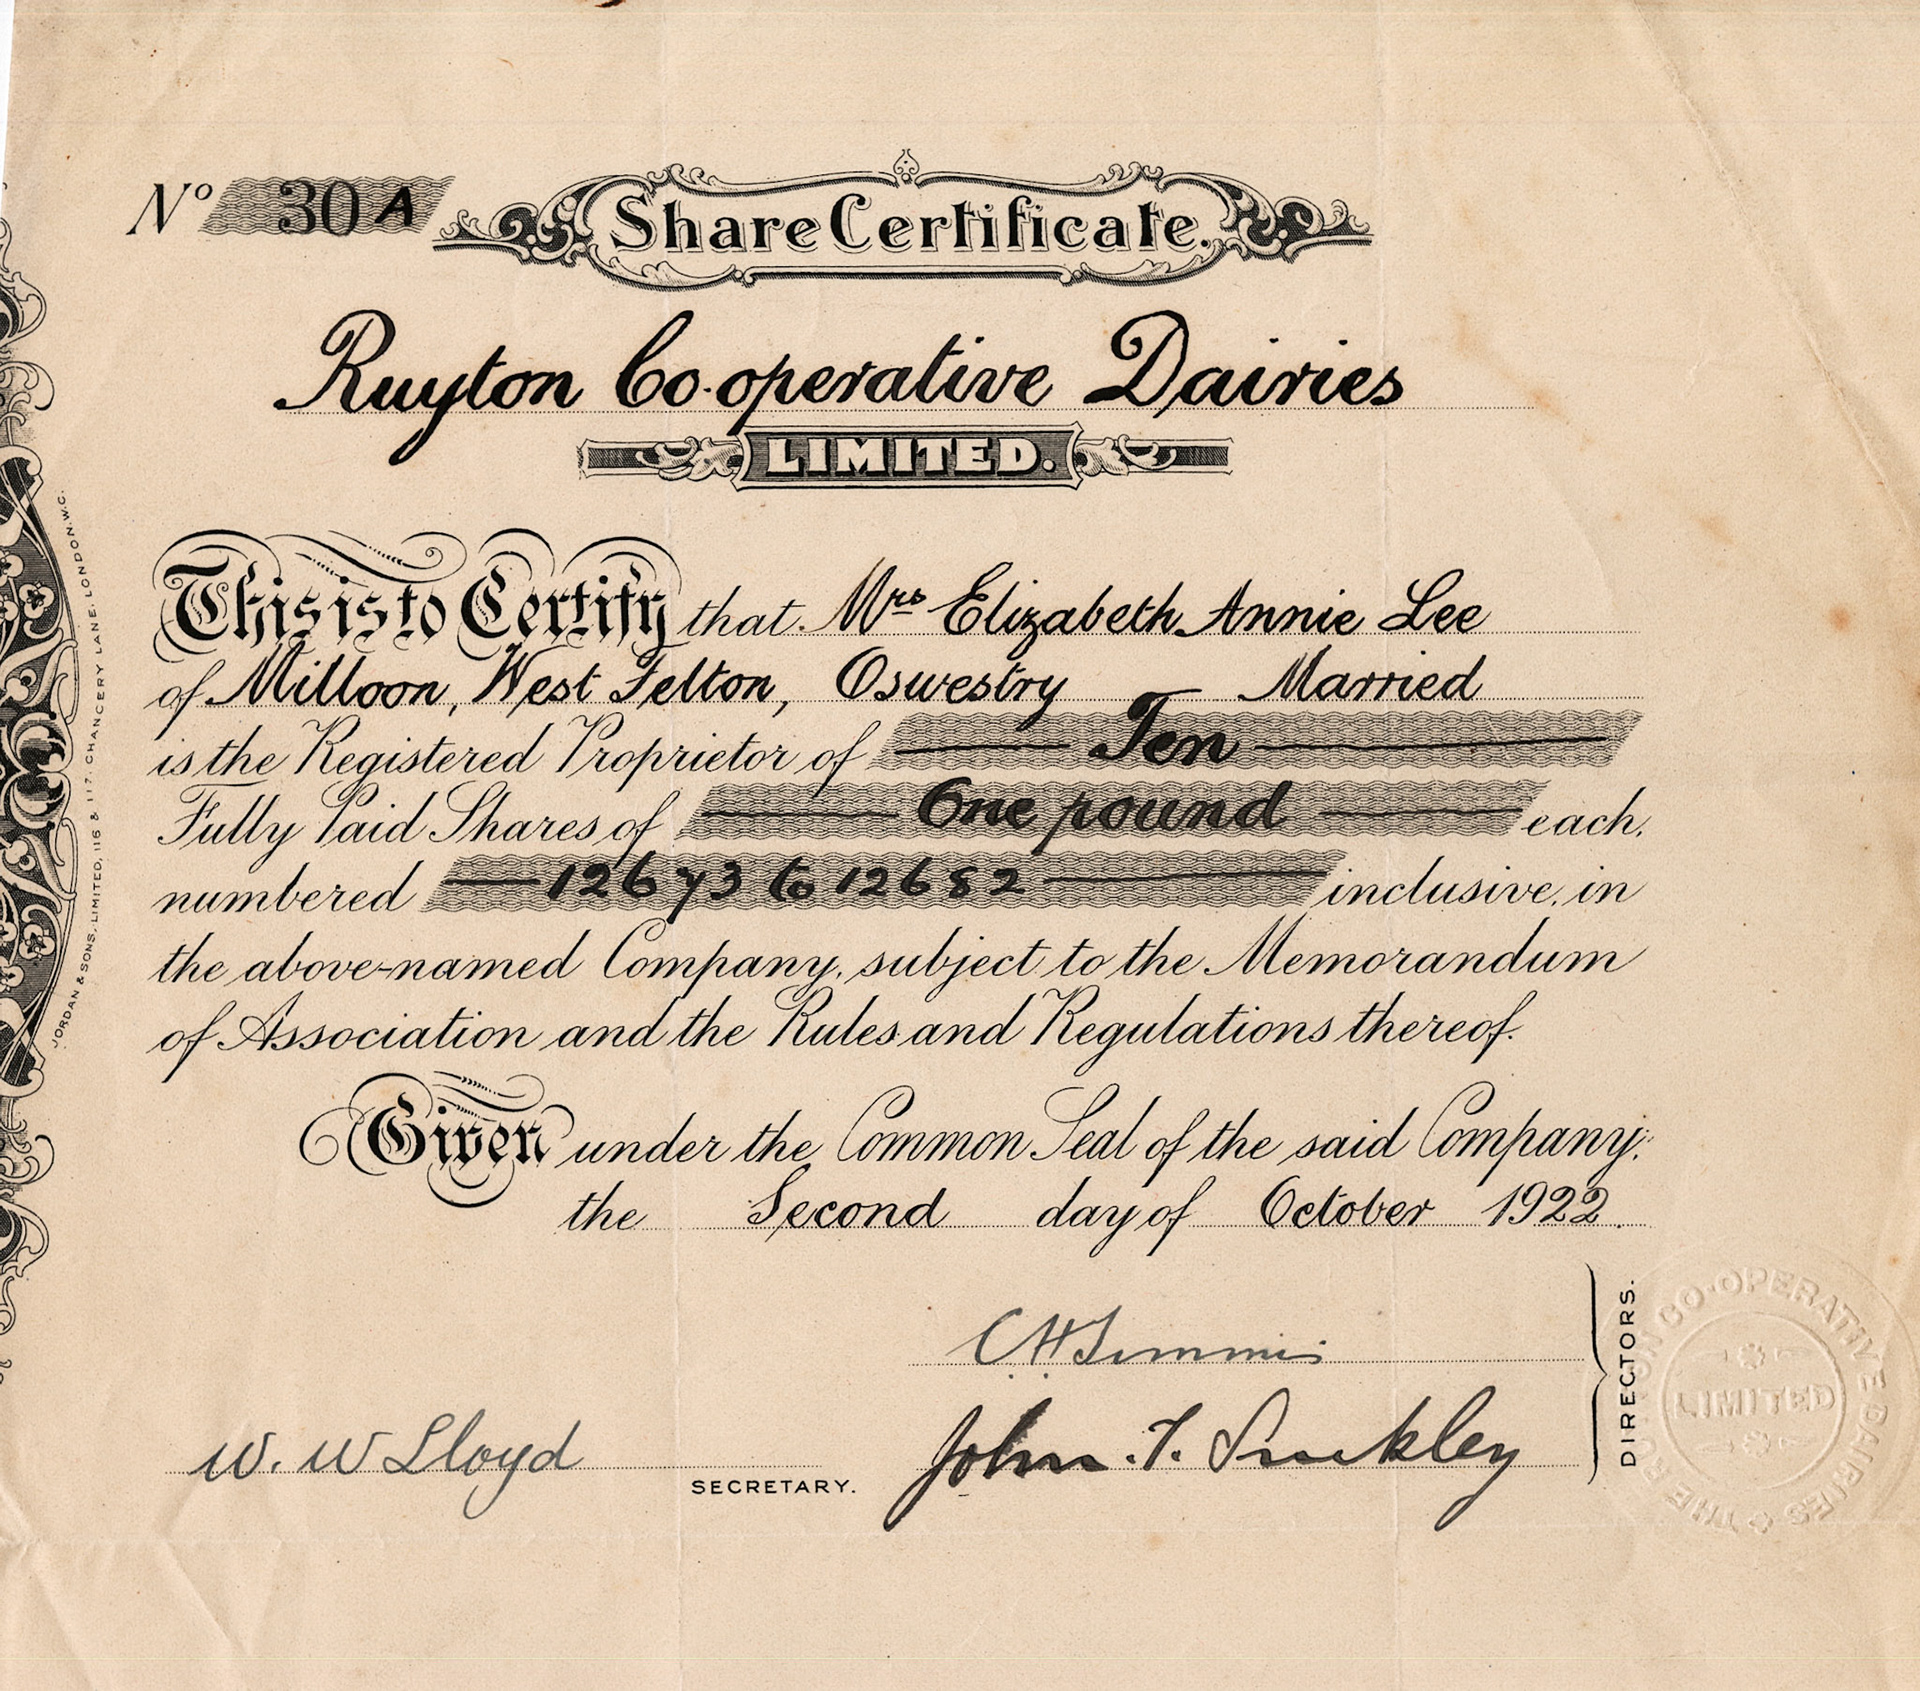 Nº 30 A
Share Certificate.
Ruyton Co-operative Dairies
LIMITED.
This is to Certify that Mrs Elizabeth Annie Lee
of Milloon, West Felton, Oswestry Married
is the Registered Proprietor of Ten
Fully Paid Shares of One pound each,
numbered 12673 to 12682 inclusive, in
the above-named Company, subject to the Memorandum
of Association and the Rules and Regulations thereof.
Given under the Common Seal of the said Company,
the Second day of October 1922.
C H Timmis
W. W Lloyd
SECRETARY.
John. T.
DIRECTORS.
THE CO-OPERATIVE DAIRIES
LIMITED
JORDAN & SONS, LIMITED, 116 & 117, CHANCERY LANE, LONDON, W.C.